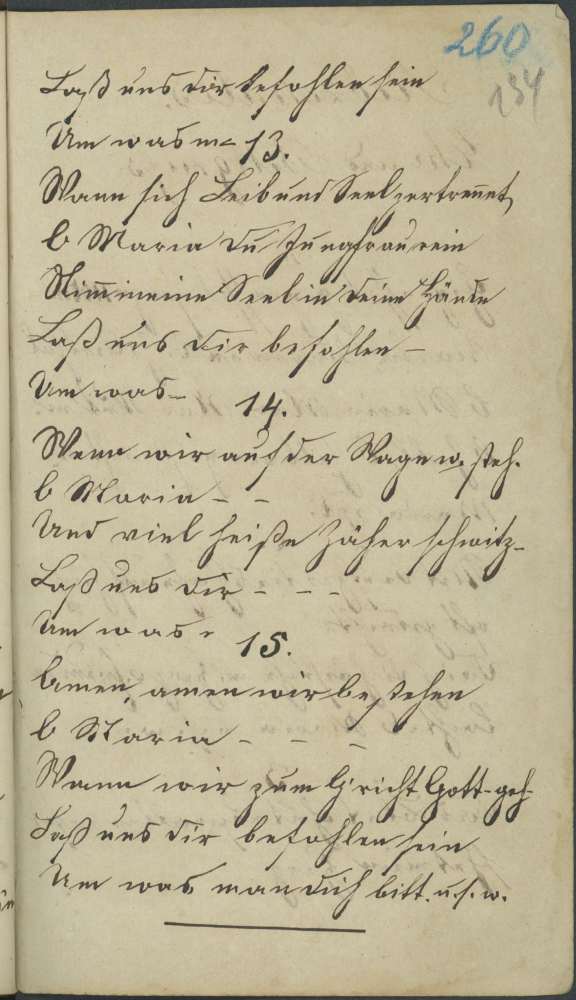 260
134
Laß uns dir befohlen sein
Um was m– 13.
Wann sich Leib und Seel zertrennet,
O Maria du Jungfrau rein
Nim̄ meine Seel in deine Hände
Laß uns dir befohlen –
Um was – 14.
Wenn wir auf der Wage w. steh.
O Maria – –
Und viel heiße Zäher schwitz–
Laß uns dir – – –
Um was – 15.
Amen, amen wir bestehen
O Maria – – –
Wann wir zum G'richt Gott– geh–
Laß uns dir befohlen sein
Um was man dich bitt. u.s.w.